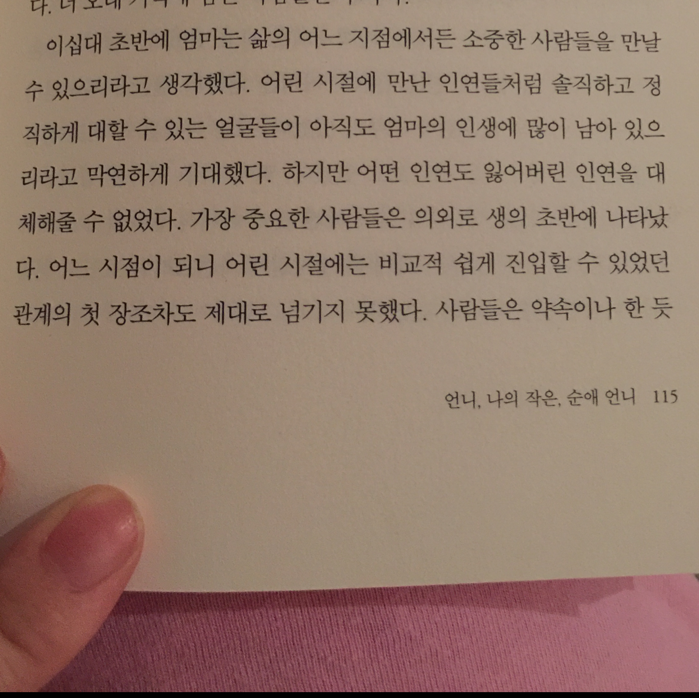 다. 더 오래
이십대 초반에 엄마는 삶의 어느 지점에서든 소중한 사람들을 만날
수 있으리라고 생각했다. 어린 시절에 만난 인연들처럼 솔직하고 정
직하게 대할 수 있는 얼굴들이 아직도 엄마의 인생에 많이 남아 있으
리라고 막연하게 기대했다. 하지만 어떤 인연도 잃어버린 인연을 대
체해줄 수 없었다. 가장 중요한 사람들은 의외로 생의 초반에 나타났
다. 어느 시점이 되니 어린 시절에는 비교적 쉽게 진입할 수 있었던
관계의 첫 장조차도 제대로 넘기지 못했다. 사람들은 약속이나 한 듯
언니, 나의 작은, 순애 언니 115